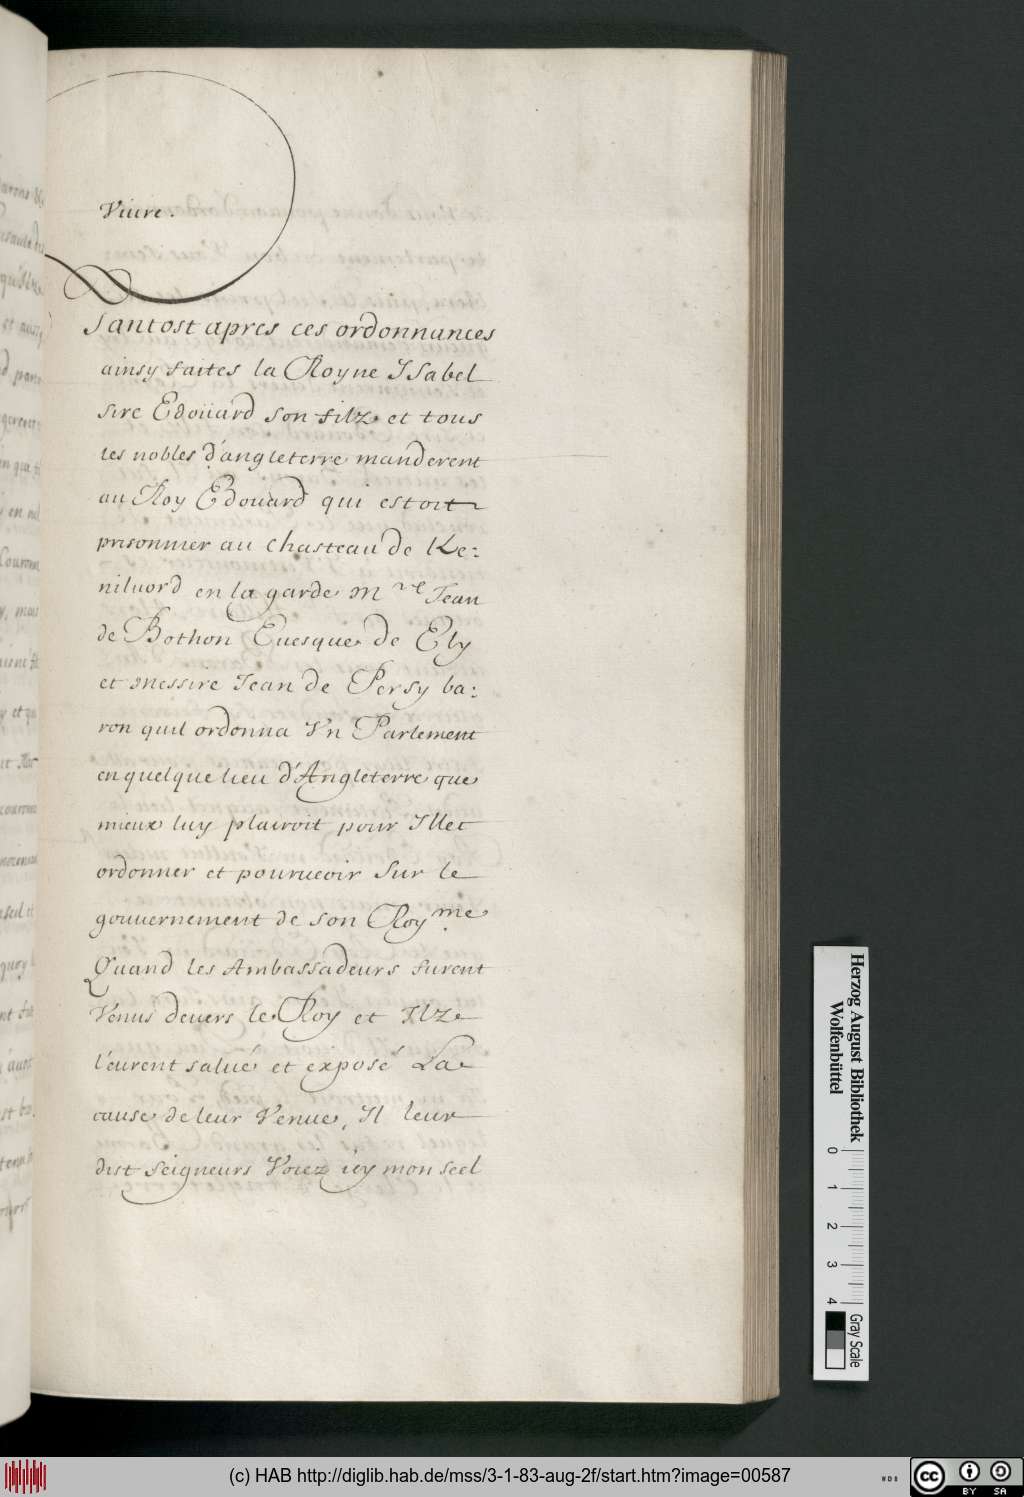 Viure.
Tantost apres ces ordonnances
ainsy faites la Royne ISabel
sire Edoüard son filz et tous
les nobles d'angleterre manderent
au Roy Edouard qui estoit
prisonnier au chasteau de Ke:
niluord en la garde M re Jean
de Bothon Euesque de Ely
et Messire Jean de Persy ba:
ron quil ordonna Vn Parlement
en quelque lieu d'Angleterre que
mieux luy plairoit pour Illec
ordonner et pourueoir Sur le
gouuernement de son Roy.me
Quand les Ambassadeurs furent
Venus deuers le Roy et Ilz
l'eurent salué et exposé La
cause de leur Venue, Il leur
dist Seigneurs Voiez icy mon seel
Herzog August Bibliothek
Wolfenbüttel
0 1 2 3 4
Gray Scale
(c) HAB http://diglib.hab.de/mss/3-1-83-aug-2f/start.htm?image=00587
WDB
cc BY SA